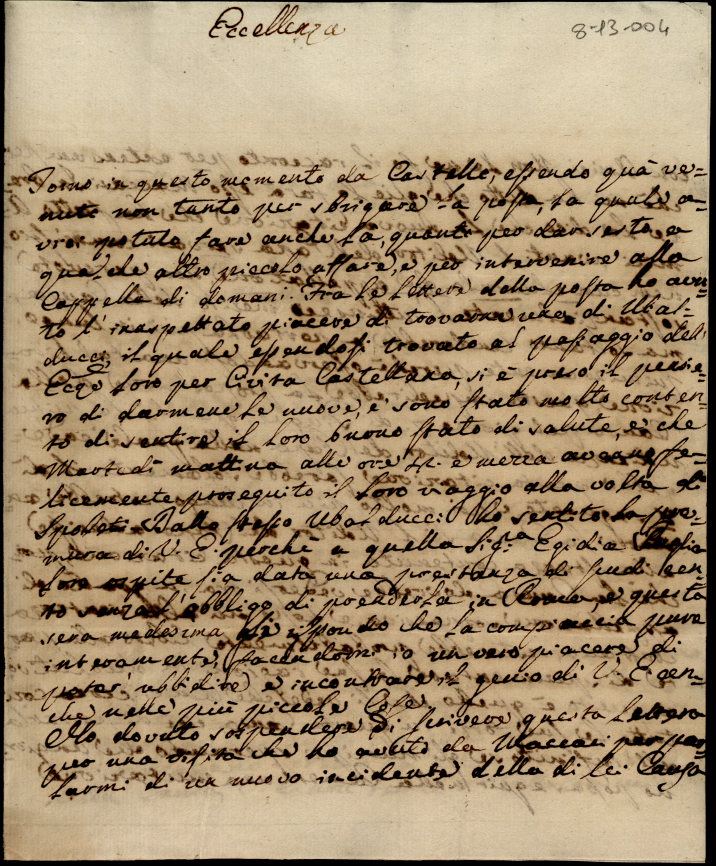 Eccellenza
8-13-004
Torno in questo momento da Castello, essendo quà ve=
nuto non tanto per sbrigare la posta, la quale a=
vrei potuto fare anche là, quanto per dar sesto a
qualche altro piccolo affare, e per intervenire alla
Cappella di domani. Fra le lettere della posta ho avu=
to l'inaspettato piacere di trovarne una di Ubal=
ducci, il quale essendosi trovato al passaggio dell'
Ecc.ze Loro per Civita Castellana, si è preso il pensie=
ro di darmene le nuove, e sono stato molto conten=
to di sentire il loro buono stato di salute, e che
Martedì mattina alle ore e mezza avesse fe=
licemente proseguito il loro viaggio alla volta di
Spoleti. Dallo stesso Ubalducci ho sentito la pre=
mura di V. E. perchè a quella Sig.ra Egidia
loro ospite sia data una prestanza di scudi cen=
to senza l'obbligo di prenderla in, e questa
sera medesima rispondo che la compiaccia pure
interamente, facendomi io un vero piacere di
poter ubbidire e incontrare il genio di V. E. an=
che nelle più piccole Cose.
Ho dovuto sospendere di scrivere questa lettera
per una visita che ho avuto da Maccari per par=
larmi di un nuovo incidente della di lei Causa